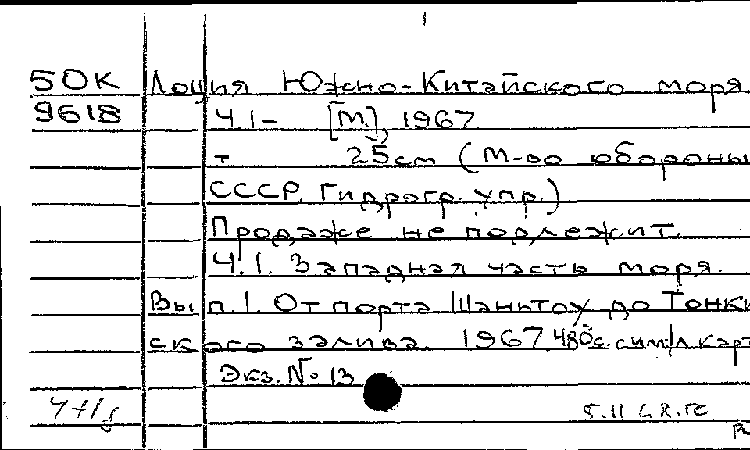 50К Лоция Южно-Китайского моря
9618 Ч.1- [М], 1967
т 25см (М-во обороны
СССР. Гидрогр. упр.)
Продаже не подлежит.
Ч.1. Западная часть моря.
Вып.1. От порта Шаньтоу до Тонки
ского залива. 1967. 480с. с ил., 1л. карт
Экз. № 13